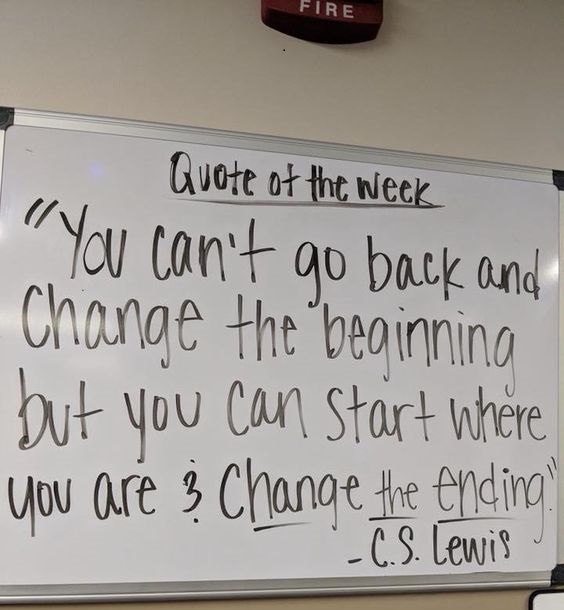 FIRE
Quote of the week
"You can't go back and
Change the beginning
but you can start where
you are & Change the ending."
-C.S. Lewis